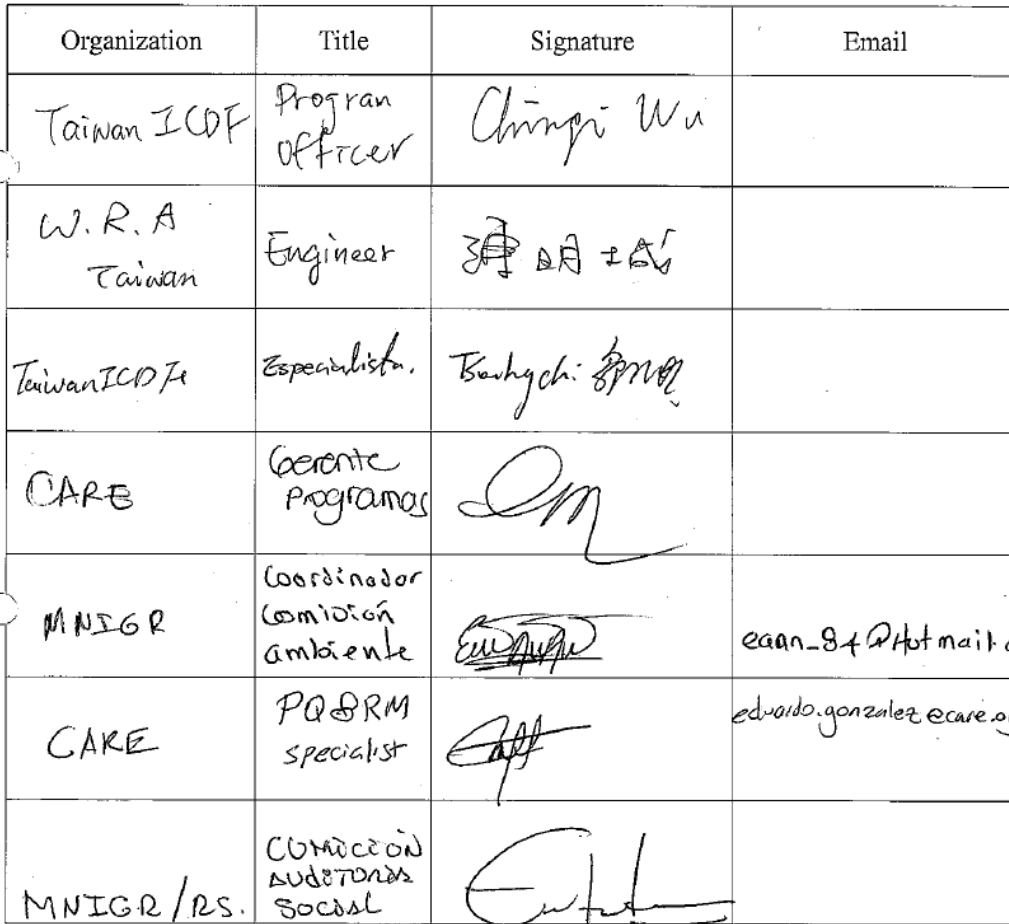 Organization Title Signature Email
Taiwan ICDF
Progran
Officer
Chingi Wu
W.R.A
Taiwan
Engineer
Taiwan ICDF
Especialista.
CARE
Gerente
Programas
MNIGR
Coordinador
Comición
ambiente
eaan_84@Hotmail.
CARE
PQ&RM
specialist
eduardo.gonzalez@care.o
MNIGR/RS.
COMICCION
AUDITORIAS
SOCIAL